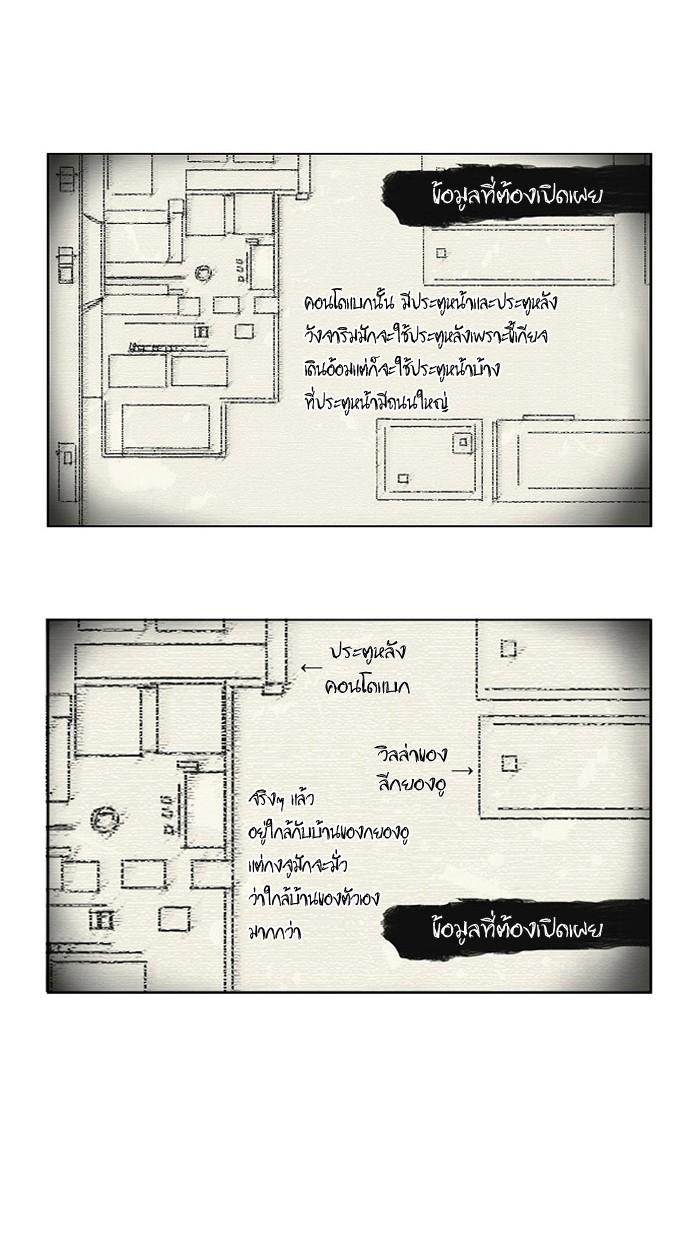 ข้อมูลที่ต้องเปิดเผย
คอนโดแบกนั้น มีประตูหน้าและประตูหลัง
วังจาริมมักจะใช้ประตูหลังเพราะขี้เกียจ
เดินอ้อมแต่ก็จะใช้ประตูหน้าบ้าง
ที่ประตูหน้ามีถนนใหญ่
← ประตูหลัง
คอนโดแบก
วิลล่าของ
ลีกยองอู →
จริงๆ แล้ว
อยู่ใกล้กับบ้านของกยองอู
แต่กงจูมักจะมั่ว
ว่าใกล้บ้านของตัวเอง
มากกว่า
ข้อมูลที่ต้องเปิดเผย